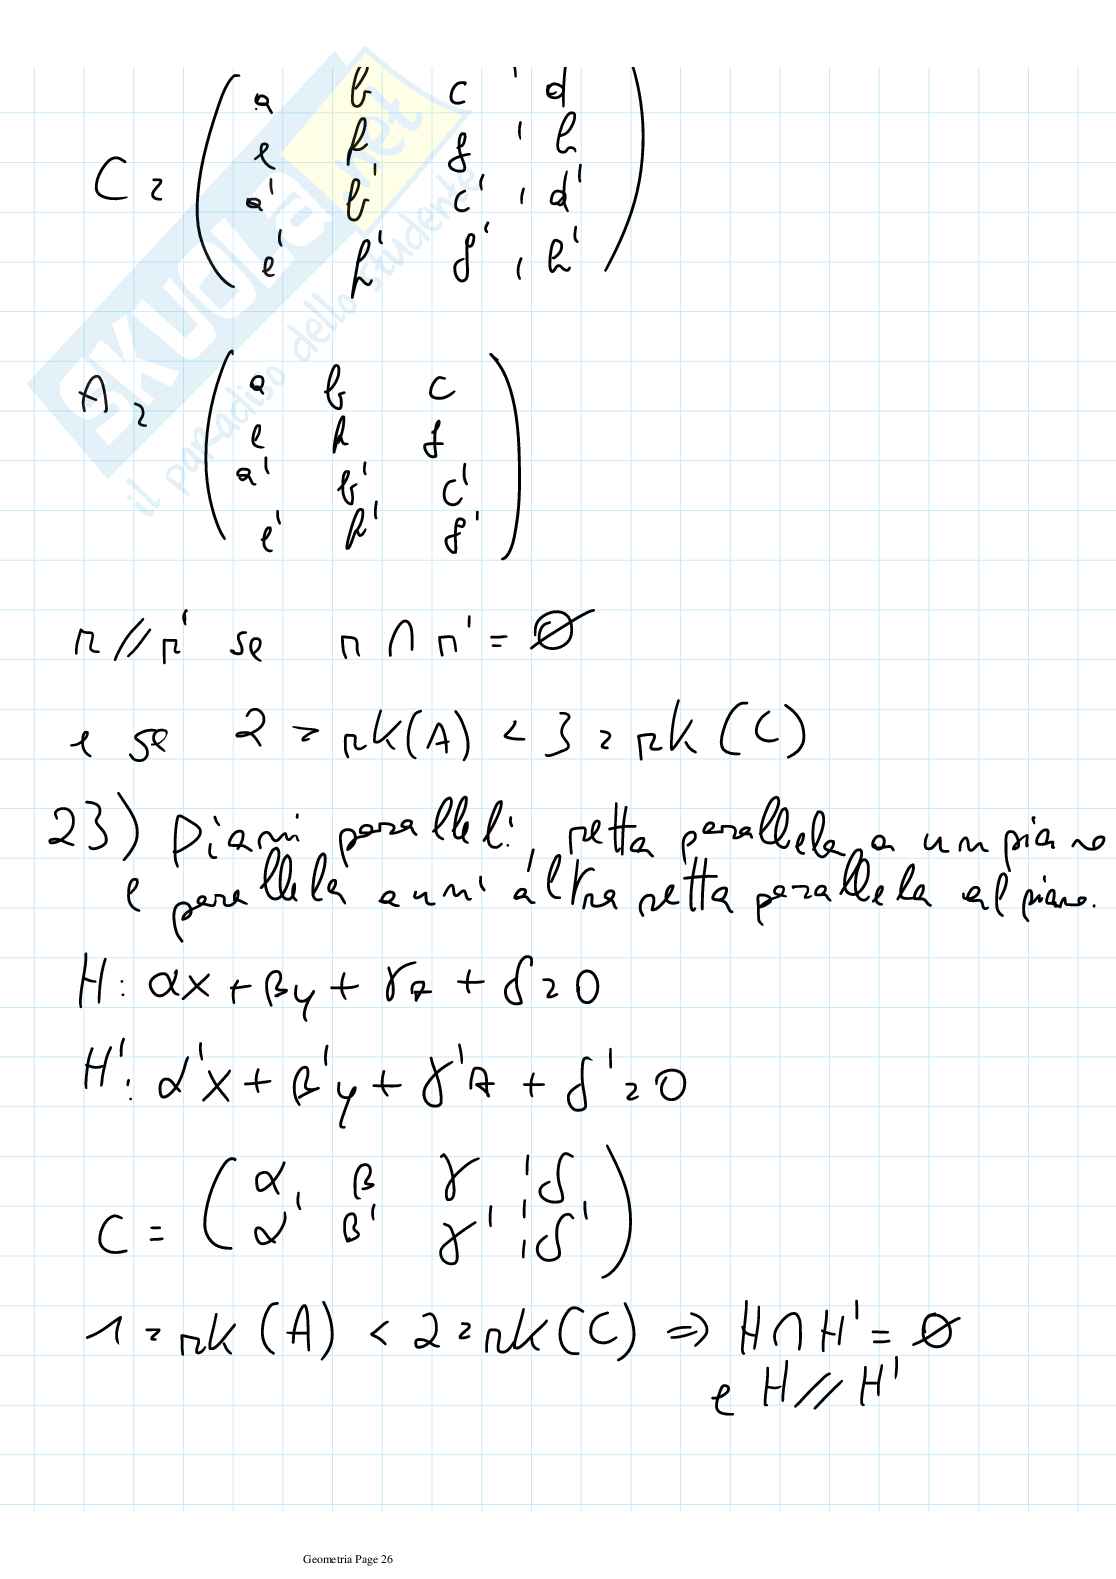 C = ( a b c ' d
e h f ' h
a' b' c' ' d'
e' h' f' ' h' )
A = ( a b c
e h f
a' b' c'
e' h' f' )
r // r' se r ∩ r' = ∅
e se 2 = rk(A) < 3 = rk(C)
23) Piani paralleli, retta parallela a un piano
e parallela a un'altra retta parallela al piano.
H: αx + βy + γz + δ = 0
H': α'x + β'y + γ'z + δ' = 0
C = ( α β γ ¦ δ
α' β' γ' ¦ δ' )
1 = rk(A) < 2 = rk(C) ⇒ H ∩ H' = ∅
e H // H'
SKUOLA.net
il paradiso dello studente
Geometria Page 26